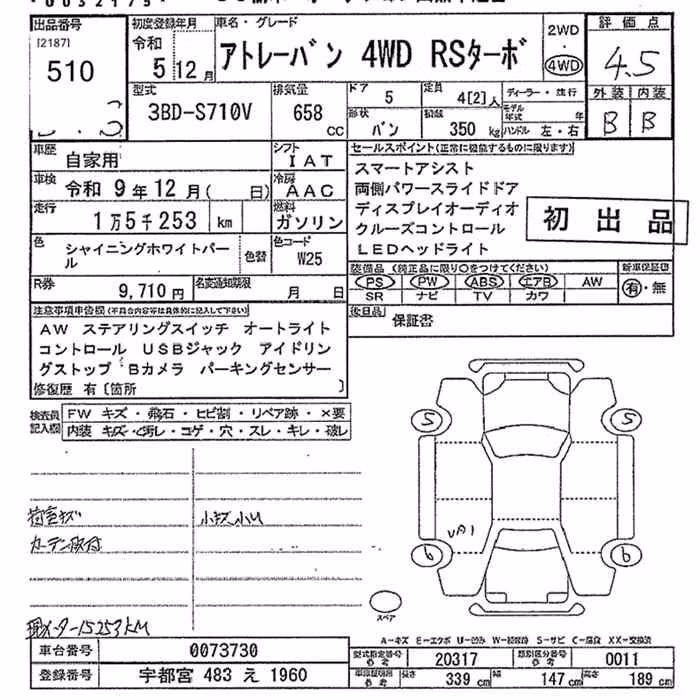 出品番号
[2187]
510
初度登録年月
令和
5年12月
車名・グレード
アトレーバン 4WD RSターボ
2WD
・
4WD
評価点
4.5
外装 内装
B B
型式
3BD-S710V
排気量
658
CC
ドア
5
定員
4[2]人
形状
バン
積載
350 kg
ディーラー・並行
モデル年式 年
ハンドル 左・右
車歴
自家用
シフト
IAT
車検
令和 9年12月( 日)
冷房
AAC
走行
1万5千253 km
燃料
ガソリン
色
シャイニングホワイトパール
色替
色コード
W25
R券
9,710円
名変通知期限
月 日
セールスポイント(正常に機能するものに限ります)
スマートアシスト
両側パワースライドドア
ディスプレイオーディオ
クルーズコントロール
LEDヘッドライト
初出品
装備品 (純正品に限り○をつけてください)
PS PW ABS エアB AW
SR ナビ TV カワ
新車保証書
有・無
後日品
保証書
注意事項申告欄(不具合内容等は具体的に記入して下さい)
AW ステアリングスイッチ オートライト
コントロール USBジャック アイドリン
グストップ Bカメラ パーキングセンサー
修復歴 有〔箇所 〕
検査員
記入欄
FW キズ・飛石・ヒビ割・リペア跡・×要
内装 キズ・汚レ・コゲ・穴・スレ・キレ・破レ
荷室キズ
小キズ小U
カーテン取付
現メーター15253KM
S
S
UA1
6
6
スペア
A-キズ E-エクボ U-凹み W-補修跡 S-サビ C-腐食 XX-交換済
車台番号
0073730
登録番号
宇都宮 483 え 1960
型式指定番号
参考
20317
類別区分番号
参考
0011
車検証明細
参考
長さ 339cm
幅 147cm
高さ 189cm